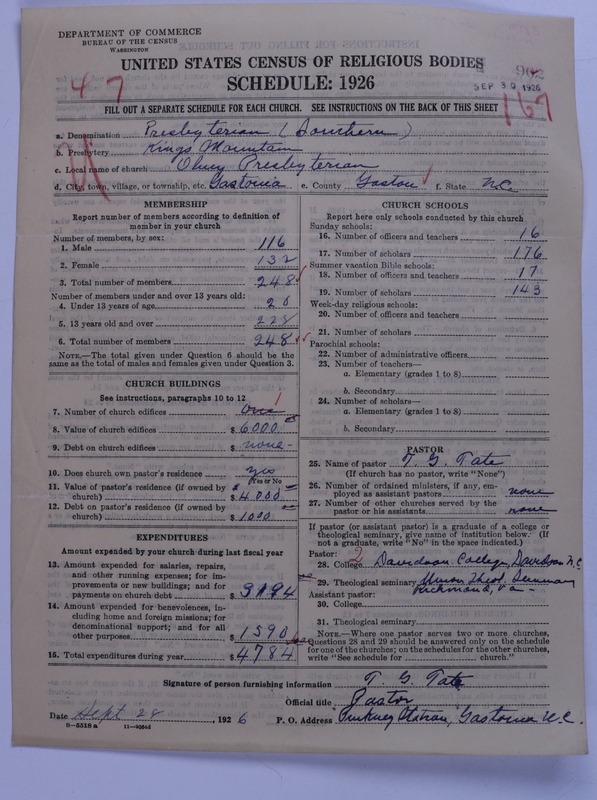 DEPARTMENT OF COMMERCE
BUREAU OF THE CENSUS
WASHINGTON
UNITED STATES CENSUS OF RELIGIOUS BODIES
SCHEDULE: 1926
902
SEP 30 1926
47
167
FILL OUT A SEPARATE SCHEDULE FOR EACH CHURCH. SEE INSTRUCTIONS ON THE BACK OF THIS SHEET
a. Denomination Presbyterian (Southern)
b. Presbytery Kings Mountain
c. Local name of church Olney Presbyterian
d. City, town, village, or township, etc. Gastonia e. County Gaston f. State N.C.
MEMBERSHIP
Report number of members according to definition of member in your church
Number of members, by sex:
1. Male 116
2. Female 132
3. Total number of members 248
Number of members under and over 13 years old:
4. Under 13 years of age 20
5. 13 years old and over 228
6. Total number of members 248
NOTE.—The total given under Question 6 should be the same as the total of males and females given under Question 3.
CHURCH BUILDINGS
See instructions, paragraphs 10 to 12
7. Number of church edifices one 1
8. Value of church edifices $ 6000
9. Debt on church edifices $ none
10. Does church own pastor's residence yes
Yes or No
11. Value of pastor's residence (if owned by church) $ 4000
12. Debt on pastor's residence (if owned by church) $ 1000
EXPENDITURES
Amount expended by your church during last fiscal year
13. Amount expended for salaries, repairs, and other running expenses; for improvements or new buildings; and for payments on church debt $ 3194
14. Amount expended for benevolences, including home and foreign missions; for denominational support; and for all other purposes $ 1590
15. Total expenditures during year $ 4784
CHURCH SCHOOLS
Report here only schools conducted by this church
Sunday schools:
16. Number of officers and teachers 16
17. Number of scholars 176
Summer vacation Bible schools:
18. Number of officers and teachers 17
19. Number of scholars 143
Week-day religious schools:
20. Number of officers and teachers
21. Number of scholars
Parochial schools:
22. Number of administrative officers
23. Number of teachers—
a. Elementary (grades 1 to 8)
b. Secondary
24. Number of scholars—
a. Elementary (grades 1 to 8)
b. Secondary
PASTOR
25. Name of pastor T. G. Tate
(If church has no pastor, write "None")
26. Number of ordained ministers, if any, employed as assistant pastors none
27. Number of other churches served by the pastor or his assistants none
If pastor (or assistant pastor) is a graduate of a college or theological seminary, give name of institution below. (If not a graduate, write "No" in the space indicated.)
Pastor: 2
28. College Davidson College, Davidson N.C.
29. Theological seminary Union Theol. Seminary
Richmond, Va
Assistant pastor:
30. College
31. Theological seminary
NOTE.—Where one pastor serves two or more churches, Questions 28 and 29 should be answered only on the schedule for one of the churches; on the schedules for the other churches, write "See schedule for church."
Signature of person furnishing information T. G. Tate
Official title Pastor
Date Sept 28, 1926 P. O. Address Pinkney Station, Gastonia N.C.
9-5518a 11-9054d